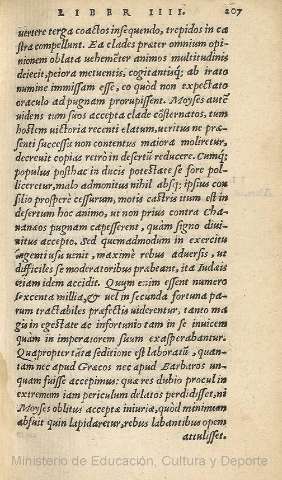 LIBER IIII. 207
uertere terga coactos insequendo, trepidos in ca
stra compellunt. Ea clades præter omnium opi
nionem oblata uehemẽter animos multitudinis
deiecit, peiora metuentis, cogitantisq; ab irato
numine immissam esse, eo quòd non expectato
oraculo ad pugnam prorupissent. Moyses autẽ
uidens tum suos accepta clade cõsternatos, tum
hostem uictoria recenti elatum, ueritus ne præ-
senti successu non contentus maiora moliretur,
decreuit copias retrò in desertũ reducere. Cumq;
populus posthac in ducis potestate se fore pol-
liceretur, malo admonitus nihil absq; ipsius con
silio prospere cessurum, motis castris itum est in
desertum hoc animo, ut non prius contra Cha-
nanæos pugnam capesserent, quàm signo diui-
nitus accepto. Sed quemadmodum in exercitu
ingenti usu uenit, maximè rebus aduersis, ut
difficiles se moderatoribus præbeant, ita Iudæis
etiam idem accidit. Quum enim essent numero
sexcenta millia, & uel in secunda fortuna pa-
rum tractabiles præfectis uiderentur, tanto ma
gis in egestate ac infortunio tam in se inuicem
quàm in imperatorem suum exasperabantur.
Quapropter tãta seditione est laboratũ, quan-
tam nec apud Græcos nec apud Barbaros un-
quam fuisse accepimus: quæ res dubio procul in
extremum iam periculum delatos perdidisset, ni
Moyses oblitus acceptæ iniuriæ, quòd minimum
abfuit quin lapidaretur, rebus labantibus opem
attulisset.
Ministerio de Educación, Cultura y Deporte